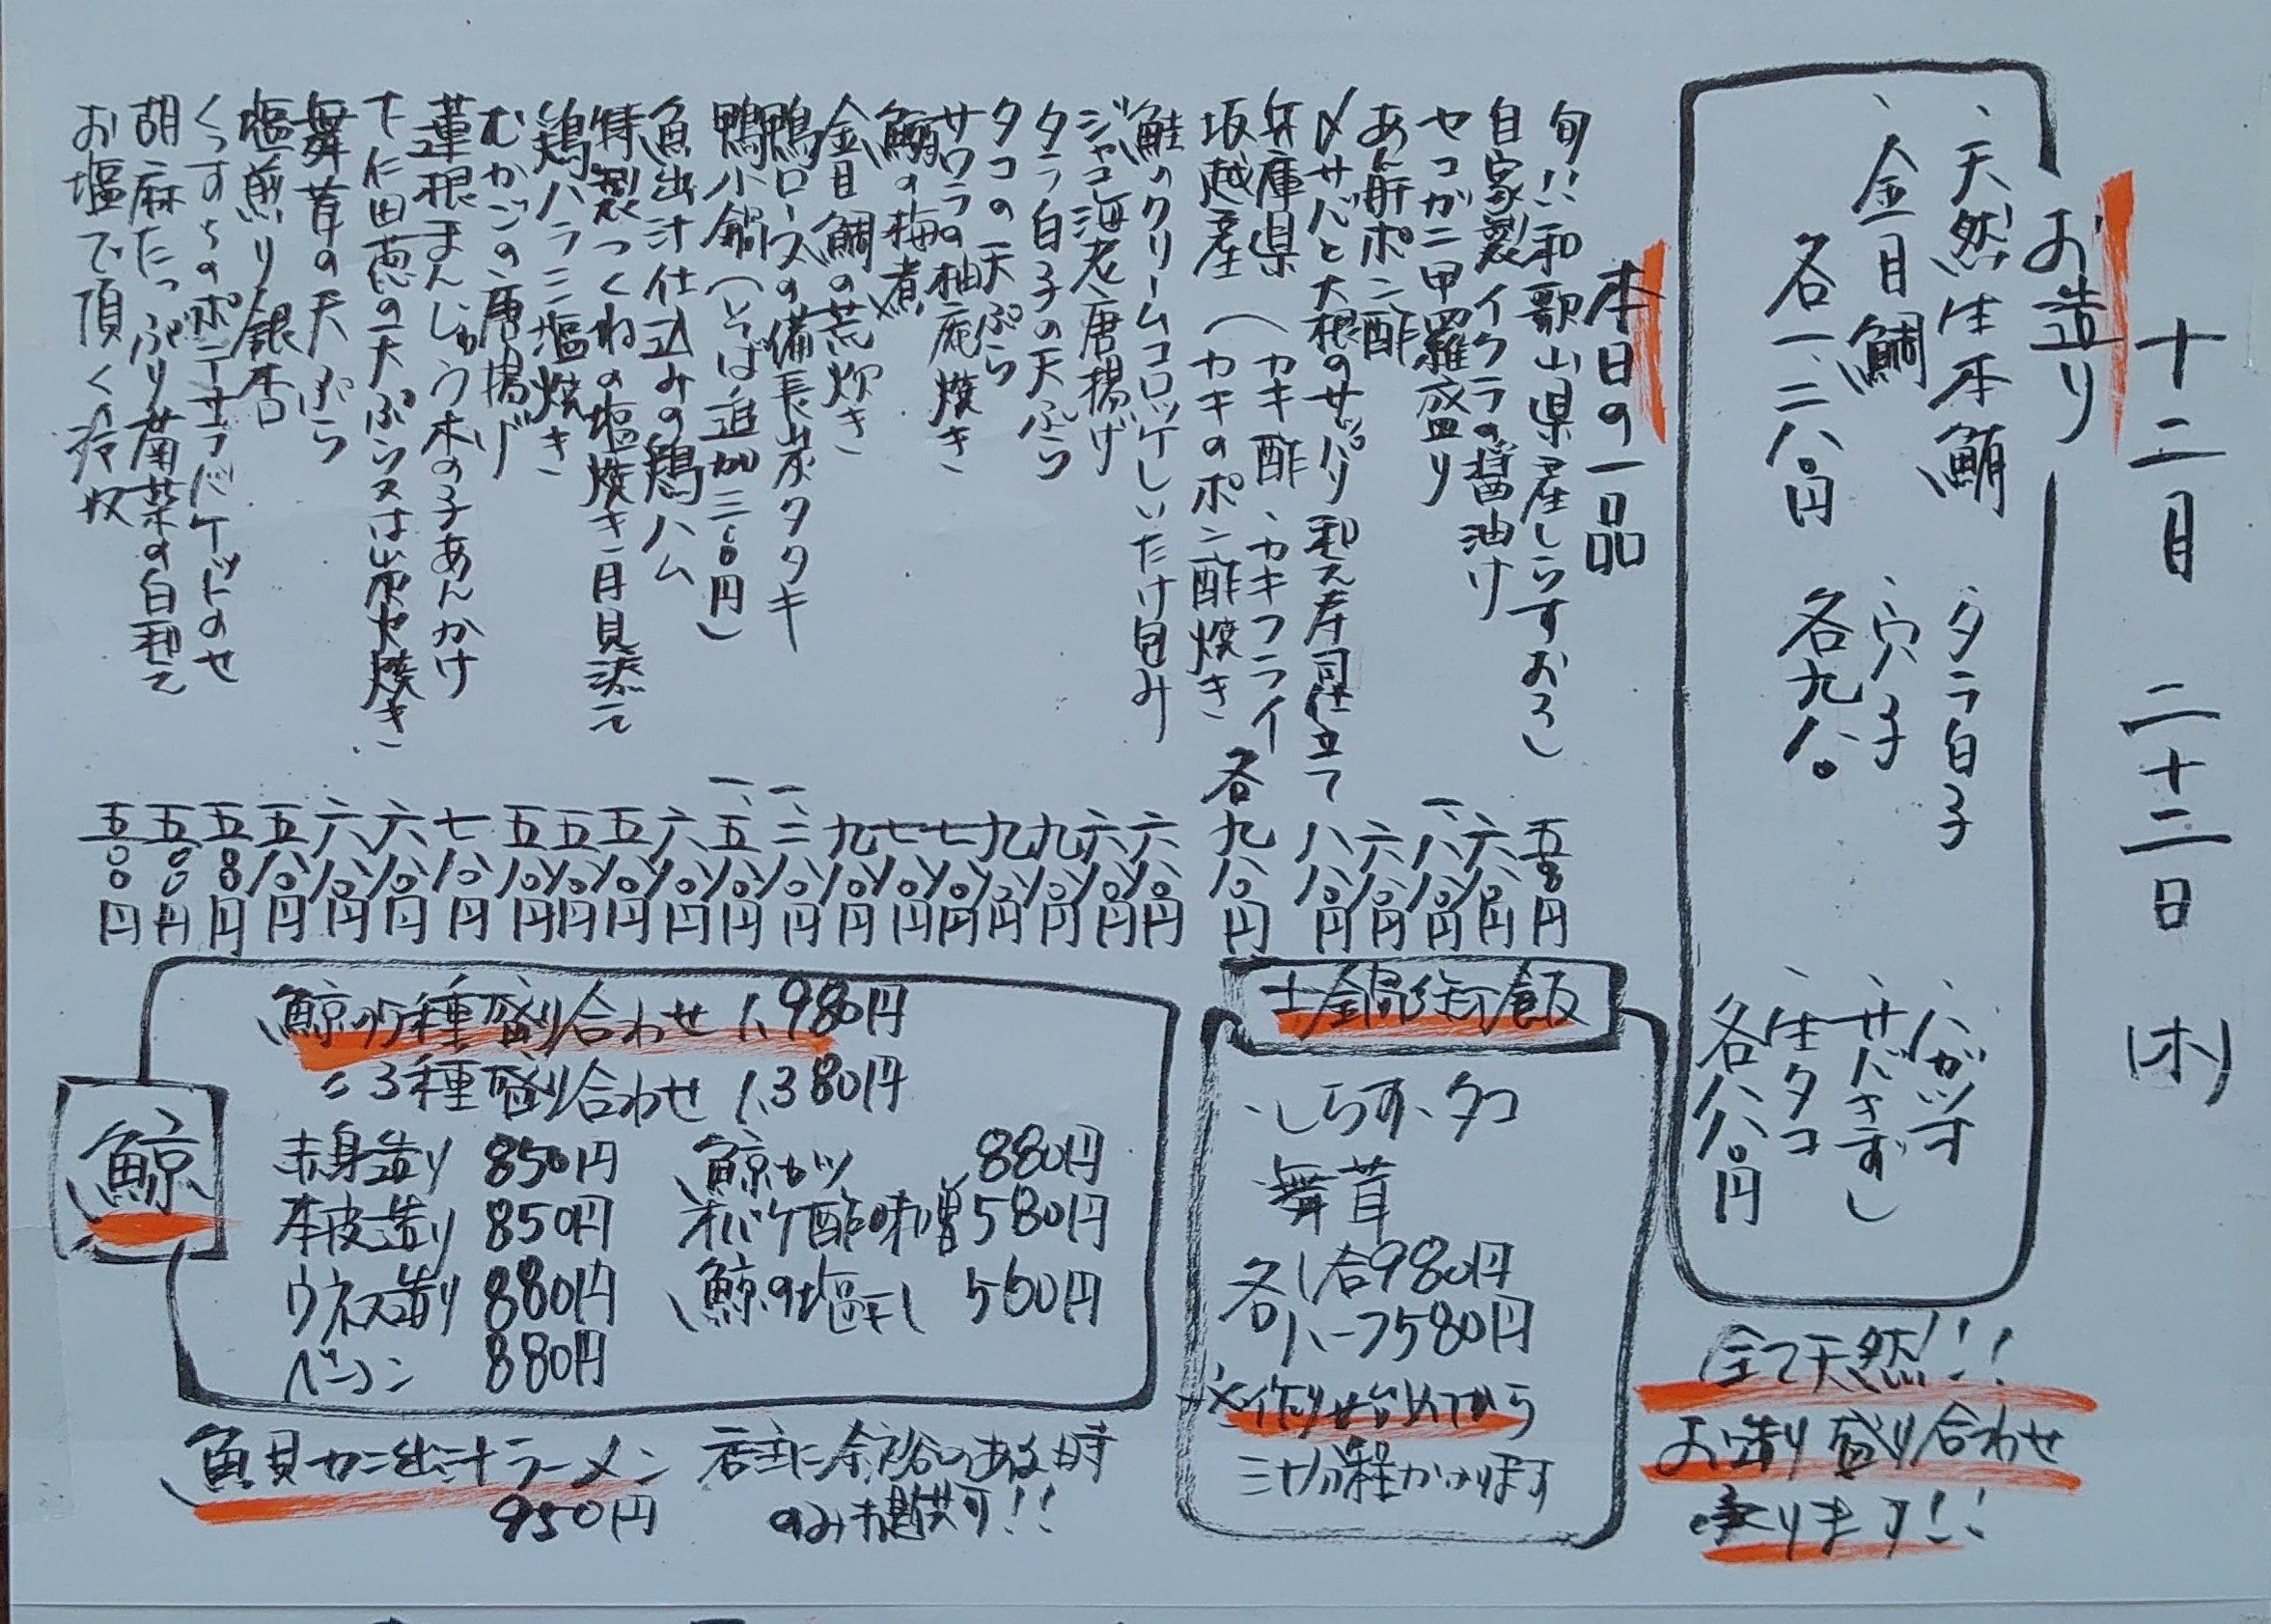 十二月 二十二日 (木)
お造り
、天然生本鮪
、金目鯛
各一、二八〇円
、タラ白子
、穴子
各九八〇
、ハガツオ
、サバきずし
、生タコ
各八八〇円
全て天然!!
お造り盛り合わせ
承ります!!
本日の一品
旬!!和歌山県産しらすおろし 五八〇円
自家製イクラの醤油漬け 六八〇円
セコガニ甲羅盛り 一、八八〇円
あん肝ポン酢 六八〇円
〆サバと大根のサッパリ和え寿司仕立て 八八〇円
兵庫県 坂越産 (カキ酢、カキフライ
カキのポン酢焼き 各九八〇円
鮭のクリームコロッケしいたけ包み 六八〇円
ジャコ海老唐揚げ 六八〇円
タラ白子の天ぷら 九八〇円
タコの天ぷら 九八〇円
サワラの柚庵焼き 七八〇円
鰯の梅煮 七八〇円
金目鯛の荒炊き 九八〇円
鴨ロースの備長炭タタキ 一、二八〇円
鴨小鍋(そば追加三〇〇円) 一、五八〇円
魚出汁仕込みの鶏ハム 六八〇円
特製つくねの塩焼き月見添え 五八〇円
鶏ハラミ塩焼き 五八〇円
むかごの唐揚げ 五八〇円
蓮根まんじゅう木の子あんかけ 七八〇円
下仁田葱の天ぷら又は炭火焼き 六八〇円
舞茸の天ぷら 六八〇円
塩煎り銀杏 五八〇円
くんすもの ポテサラバケットのせ 五八〇円
胡麻たっぷり菊菜の白和え 五八〇円
お塩で頂く冷奴 五八〇円
土鍋御飯
、しらす、タコ
、舞茸
各1合980円
各ハーフ580円
※作り始めてから
三十分程かかります
鯨
鯨の5種盛り合わせ 1,980円
〃3種盛り合わせ 1,380円
赤身造り 850円
本皮造り 850円
ウネス造り 880円
ベーコン 880円
鯨カツ 880円
オバケ酢味噌 580円
鯨の塩干し 560円
魚貝カニ出汁ラーメン
950円
店主に余裕のある時
のみ提供可!!